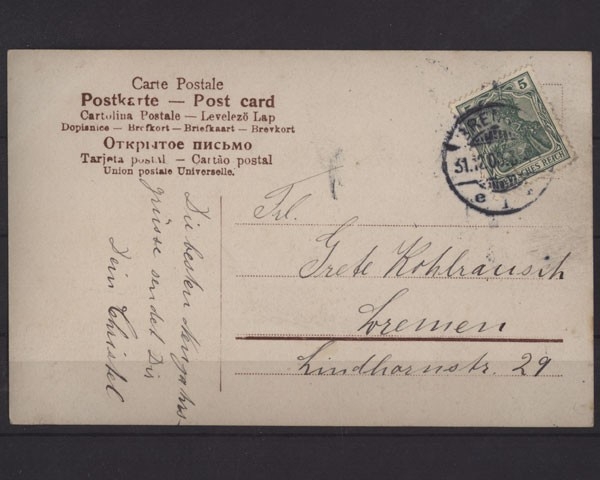 Carte Postale
Postkarte — Post card
Cartolina Postale — Levelező Lap
Dopisnice — Brfkort — Briefkaart — Brevkort
Открытое письмо
Tarjeta postal — Cartão postal
Union postale Universelle.
5
BREMEN
31.12.
DEUTSCHES REICH
e 1 e
Frl.
Grete Kohlrausch
Bremen
Lindhornstr. 29
Die besten Neujahrs-
grüsse sendet Dir
Dein Christel